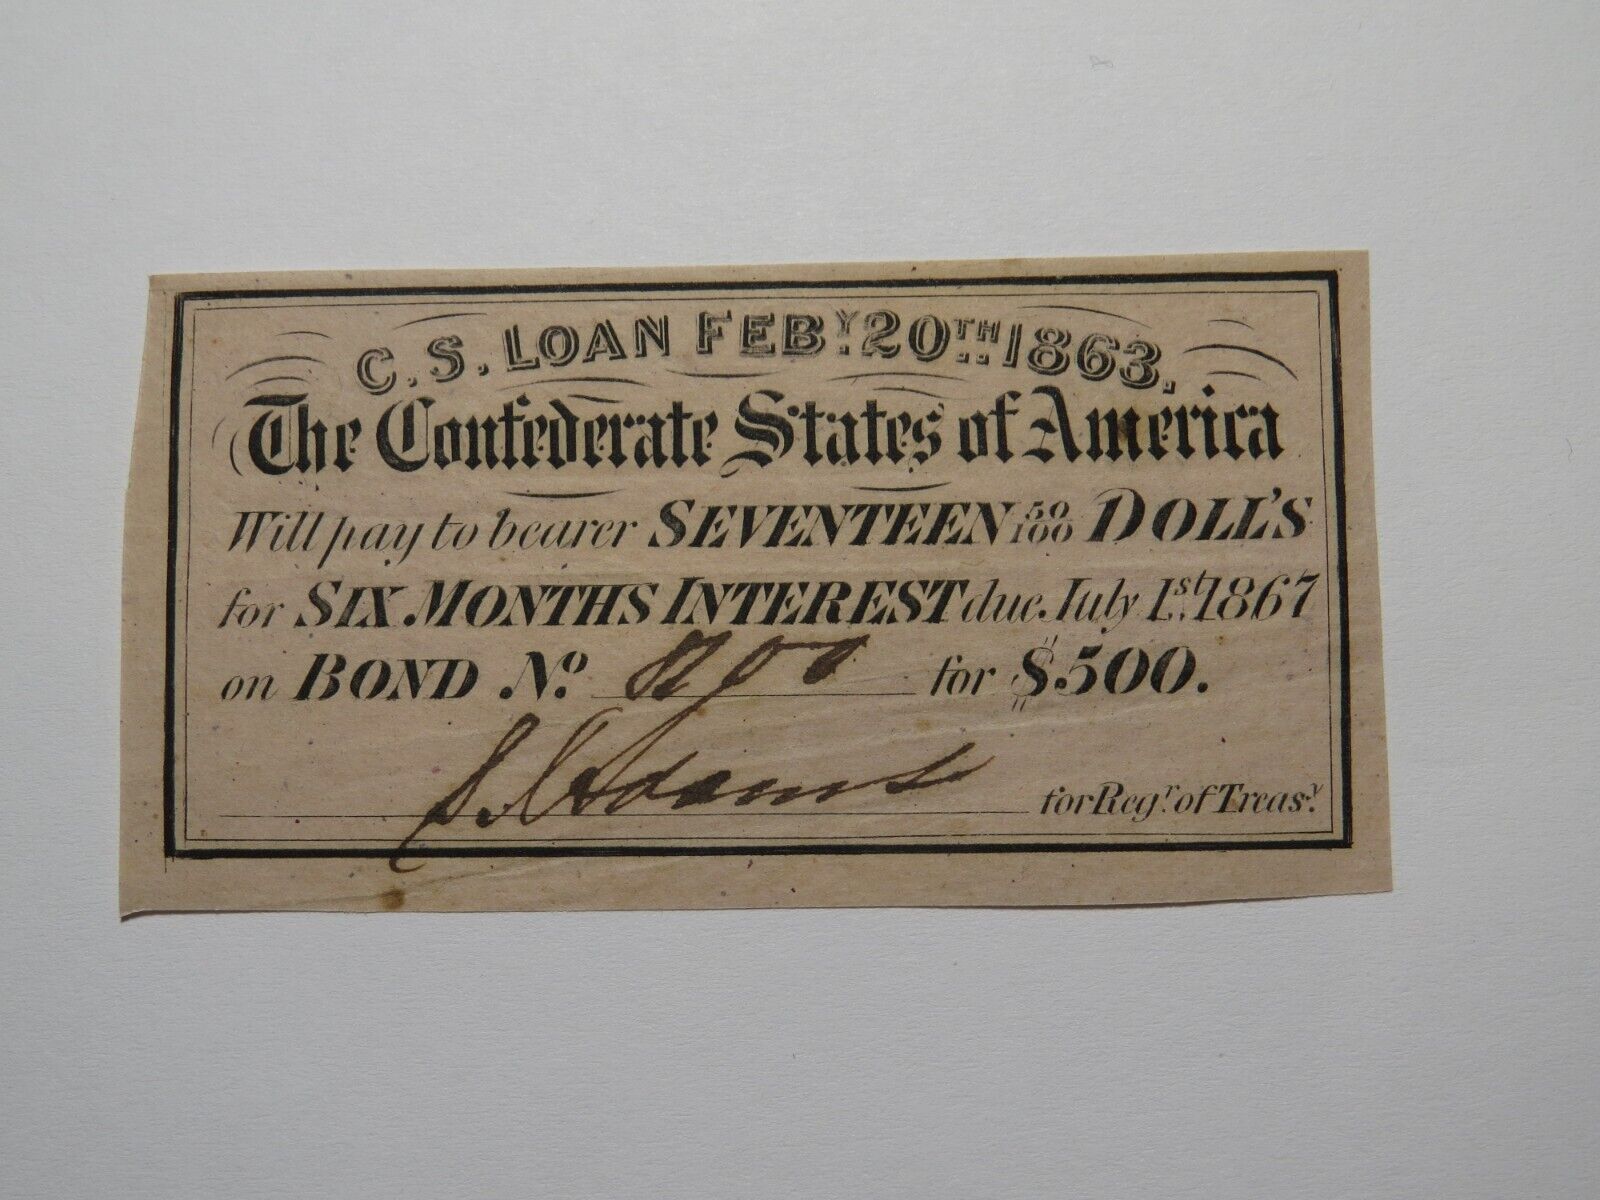 C. S. LOAN FEBY. 20TH. 1863,
The Confederate States of America
Will pay to bearer SEVENTEEN 50/100 DOLL'S
for SIX MONTHS INTEREST due July 1st. 1867
on BOND No. for $.500.
Adams
for Regr. of Treasy.